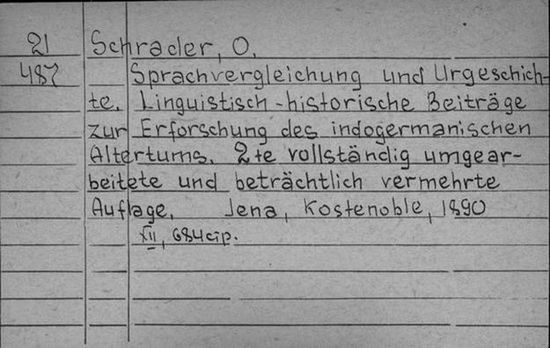 21 Schrader, O.
487 Sprachvergleichung und Urgeschich-
te. Linguistisch-historische Beiträge
zur Erforschung des indogermanischen
Altertums. 2te vollständig umgear-
beitete und beträchtlich vermehrte
Auflage. Jena, Kostenoble, 1890
XII, 684 стр.